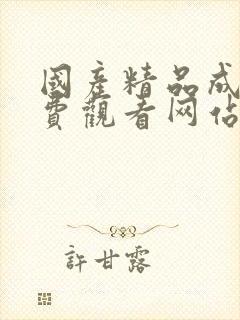 國產精品成
費觀看网佔
許甘露